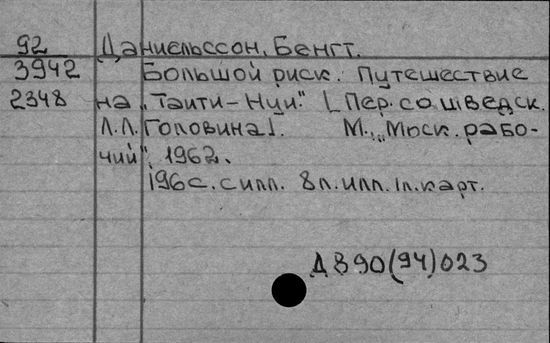 92 Даниельссон, Бенгт.
3942 Большой риск. Путешествие
2348 на „Таити-Нуи." [Пер. со шведск.
Л.Л. Головина]. М., „Моск. рабо-
чий", 1962.
196с. с илл. 8л. илл. 1л. карт.
Д890(94)023